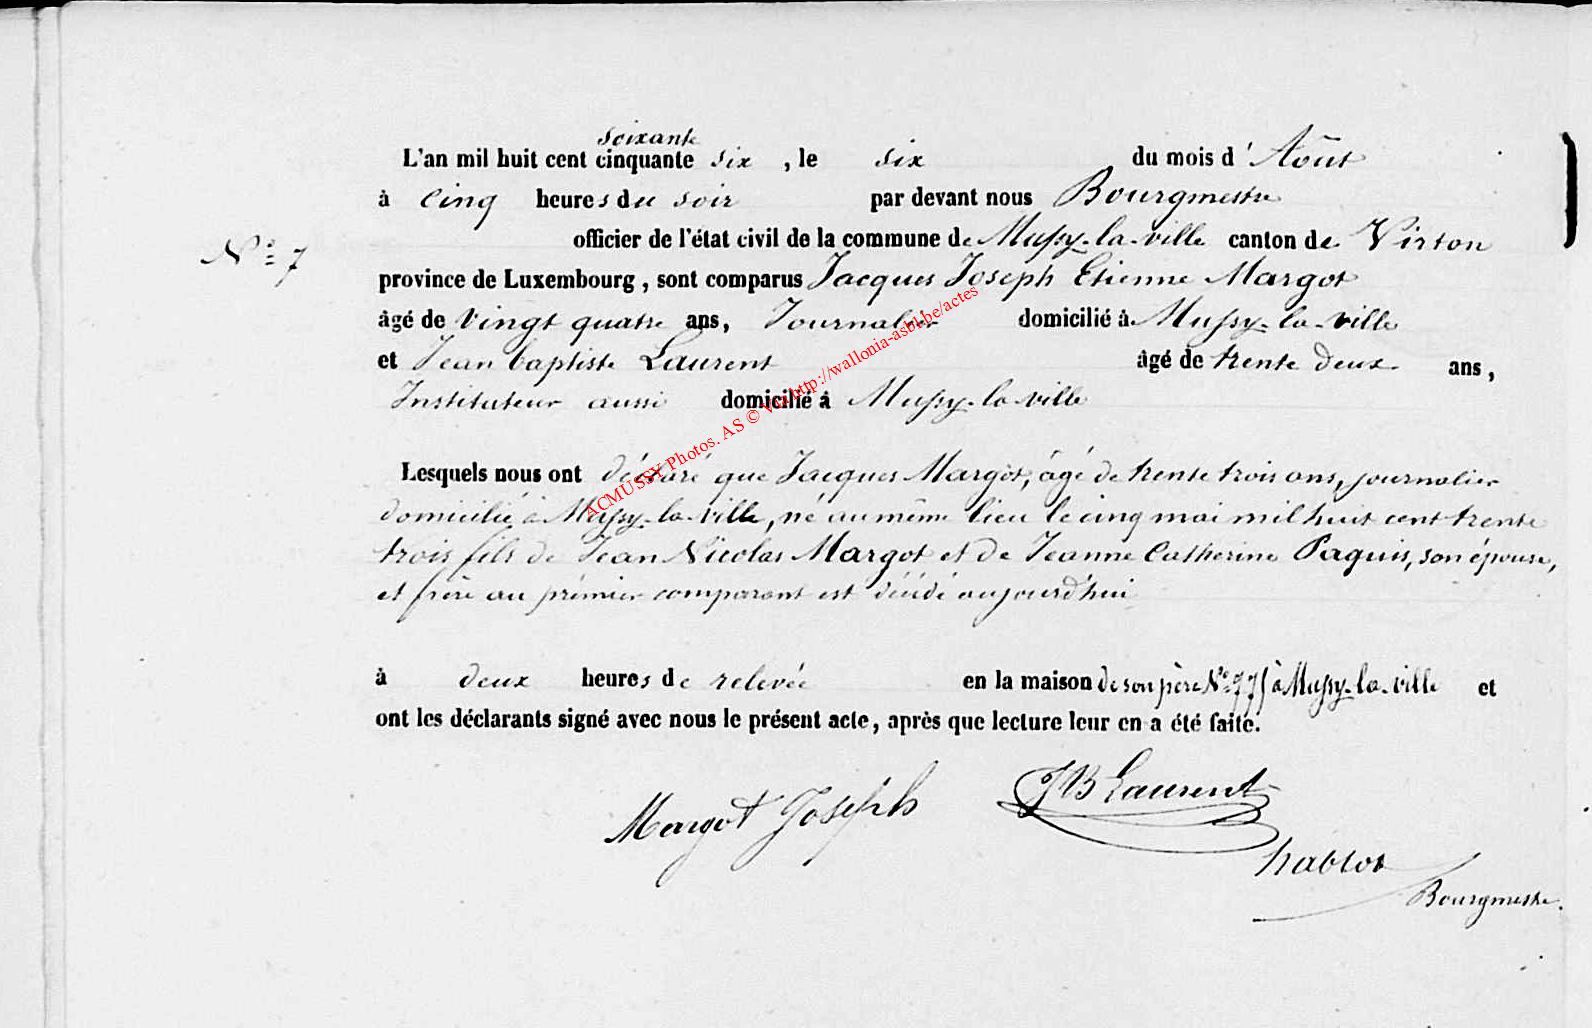 soixante
L'an mil huit cent cinquante six , le six du mois d' Août
à cinq heures du soir par devant nous Bourgmestre
officier de l'état civil de la commune de Mussy-la-ville canton de Virton
N° 7
province de Luxembourg , sont comparus Jacques Joseph Etienne Margot
âgé de vingt quatre ans, Journalier domicilié à Mussy-la-ville
et Jean baptiste Laurent âgé de trente deux ans,
Instituteur aussi domicilié à Mussy-la-ville
ACMUSSY Photos. AS © Via http://wallonia-asbl.be/actes
Lesquels nous ont déclaré que Jacques Margot, âgé de trente trois ans, journalier
domicilié à Mussy-la-ville, né au même lieu le cinq mai mil huit cent trente
trois fils de Jean Nicolas Margot et de Jeanne Catherine Paquis, son épouse,
et frère au prémier comparant est décédé aujourd'hui
à deux heures de relevée en la maison de son père N° à Mussy-la-ville et
ont les déclarants signé avec nous le présent acte, après que lecture leur en a été faite.
Margot Joseph JB Laurent
habtot
Bourgmestre.